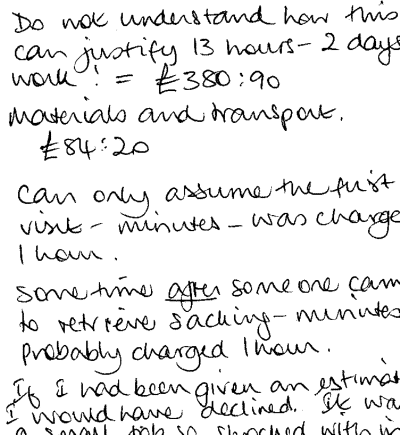 Do not understand how this
can justify 13 hours - 2 days
work! = £380:90
Materials and transport.
£84:20
Can only assume the first
visit - minutes - was charge
1 hour.
Sometime after someone cam
to retrieve sacking - minutes
Probably charged 1 hour.
If I had been given an estimat
I would have declined. It wa
a small job so shocked with